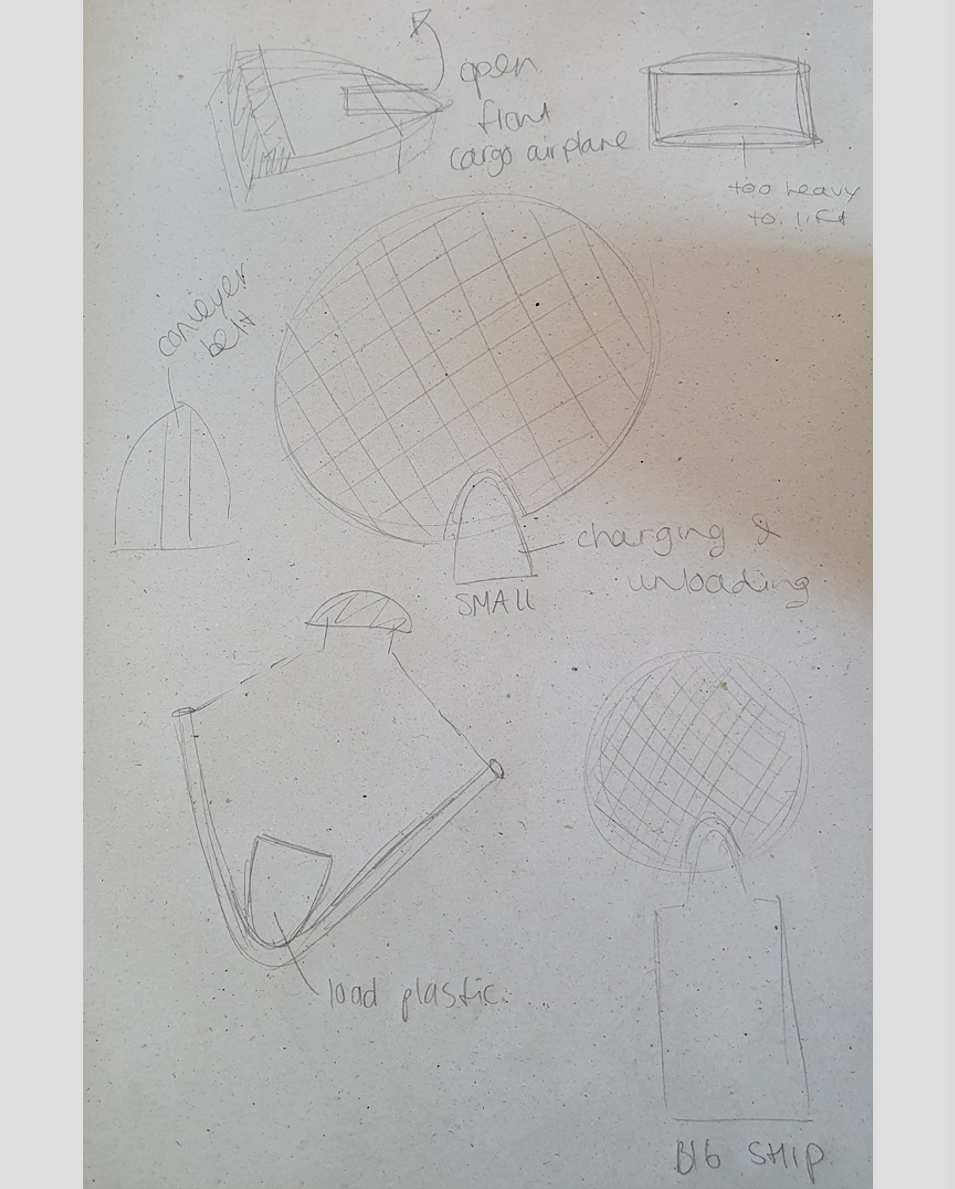 open
front
cargo airplane
too heavy
to lift
conveyer
belt
charging &
unloading
SMALL
load plastic.
BIG SHIP